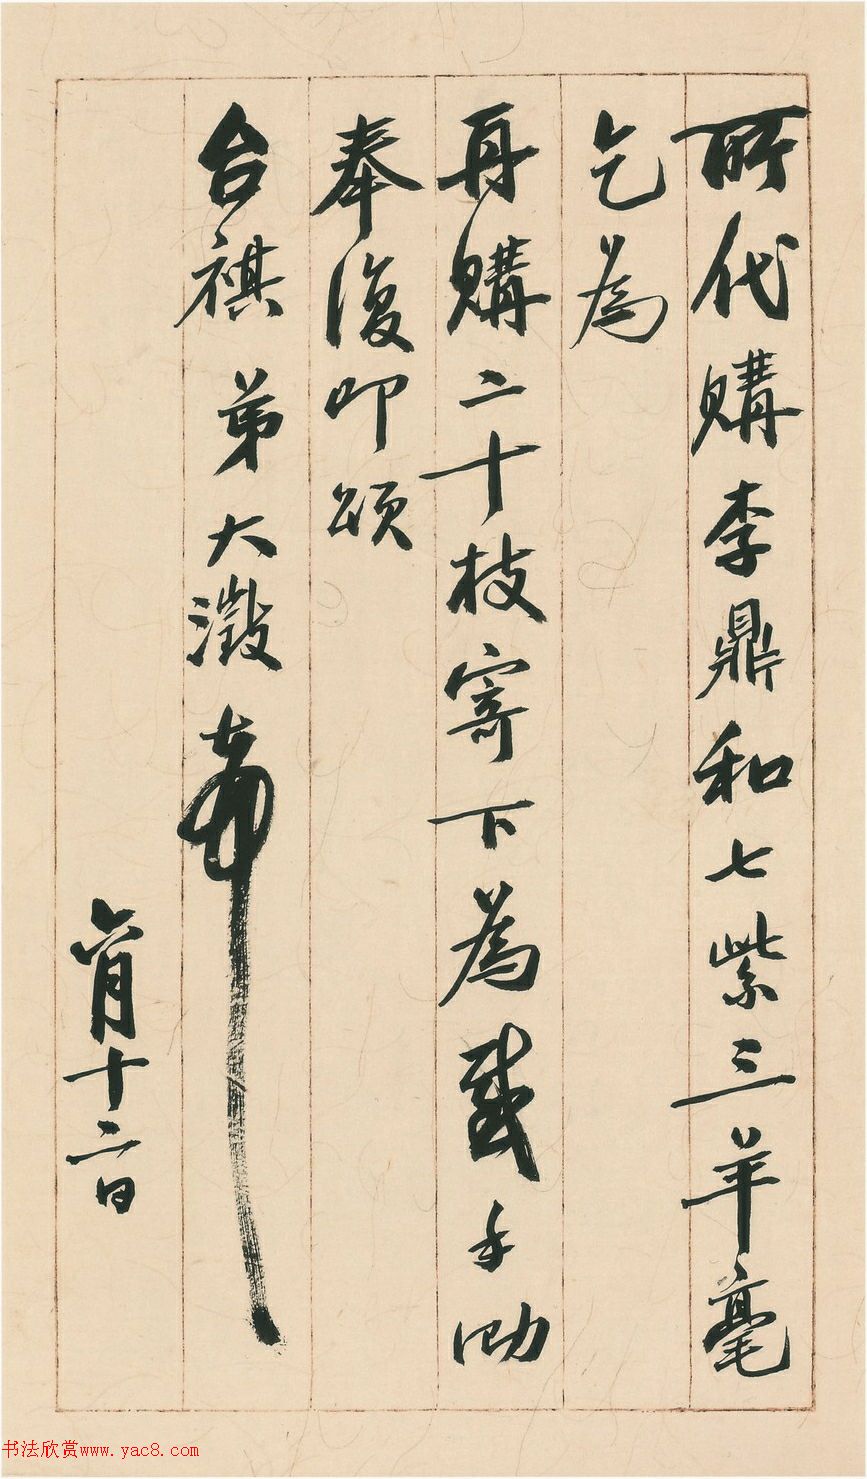 所代購李鼎和七紫三羊毫
乞為
再購二十枝寄下為感手泐
奉復叩頌
台祺 弟大澂
六月十二日
书法欣赏www.yac8.com